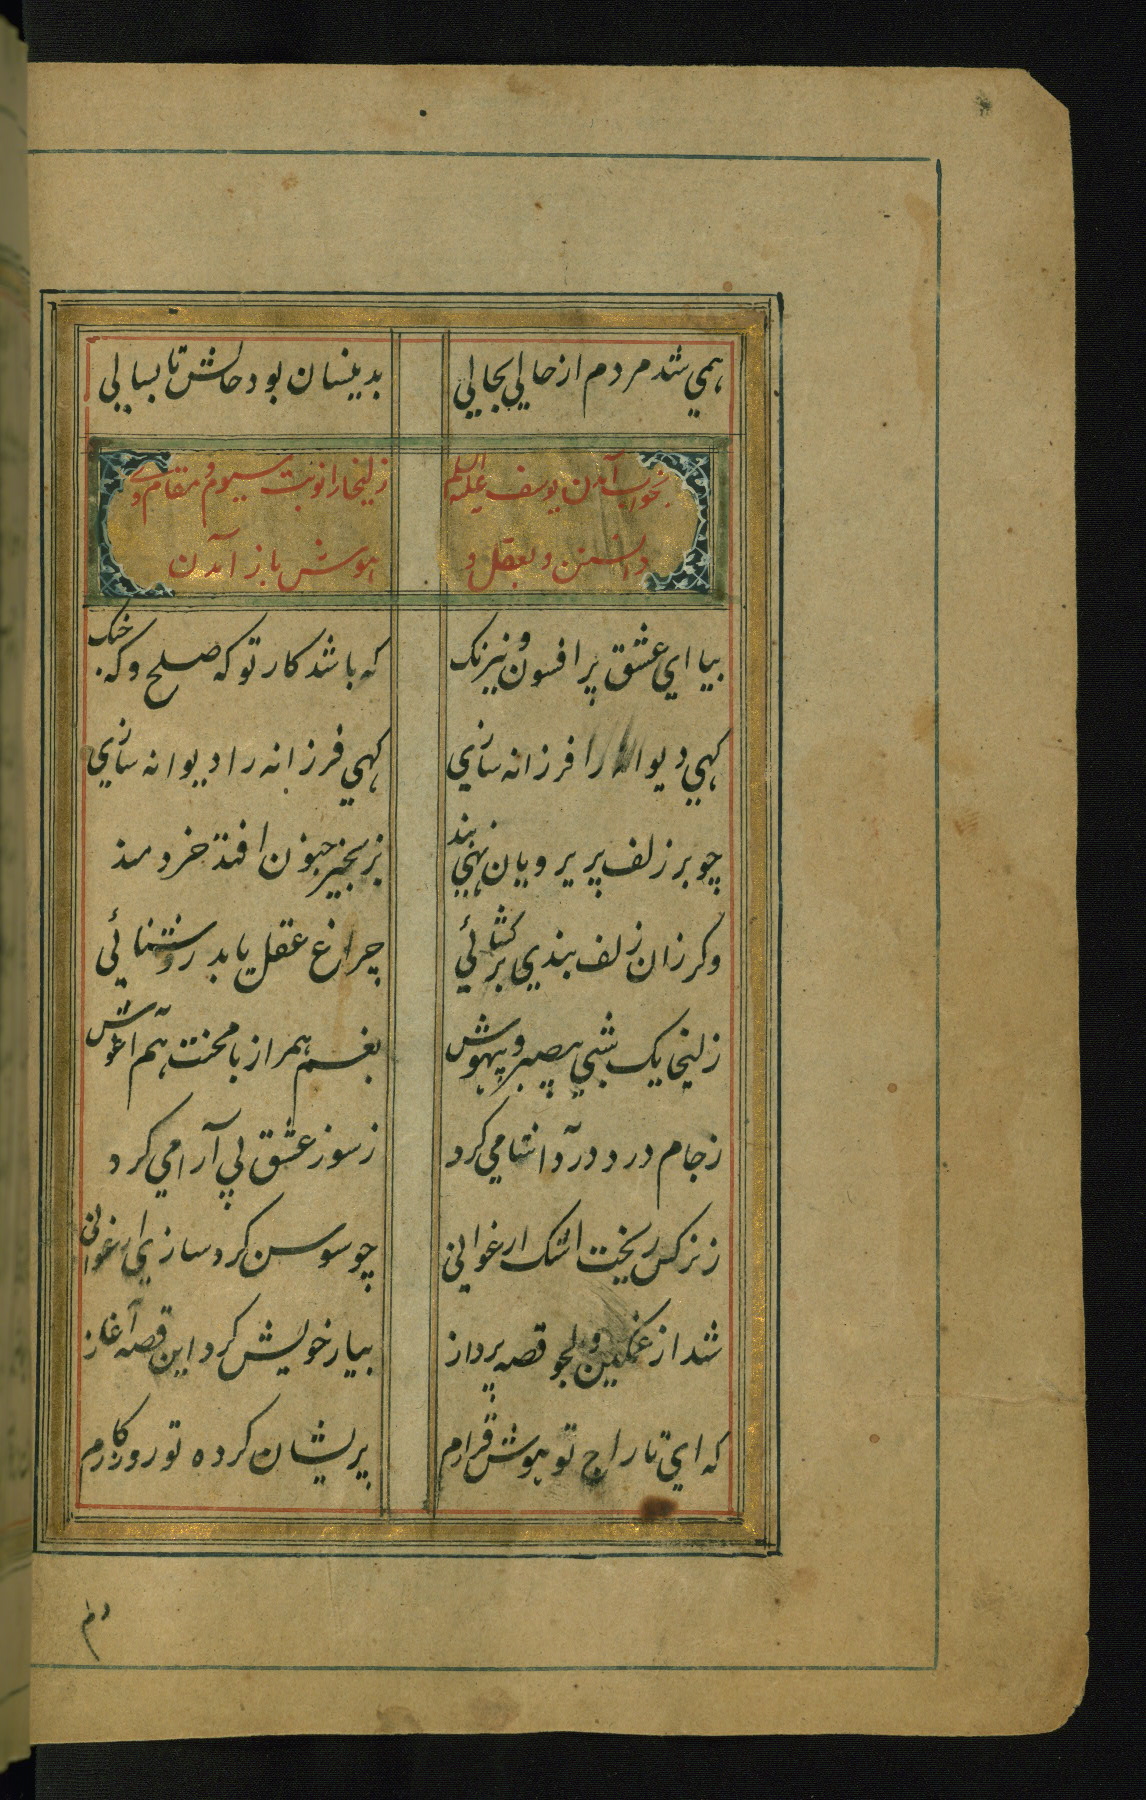 همي شد مردم از حالي بحالي بدينسان بود حالش تا بسالي
بخواب آمدن يوسف عليه السلام زليخا را نوبت سيوم و مقام وي
دانستن و بعقل و هوش باز آمدن
بيا اي عشق پر افسون و نيرنك كه باشد كار تو كه صلح و كه جنك
كهي ديوانه را فرزانه سازي كهي فرزانه را ديوانه سازي
چو بر زلف پريرويان نهي بند بزنجير جنون افتد خردمند
وكر زان زلف بندي بركشائي چراغ عقل يابد روشنائي
زليخا يك شبي بيصبر و بيهوش بغم همراز با محنت هم آغوش
ز جام درد درد آشامي كرد ز سوز عشق بي آرامي كرد
ز نركس ريخت اشك ارغواني چو سوسن كرد ساز
شد از غمكين قصه پرداز بيار خويش كرد اين قصه آغاز
كه اي تاراج تو هوش و قرارم پريشان كرده تو روزكارم